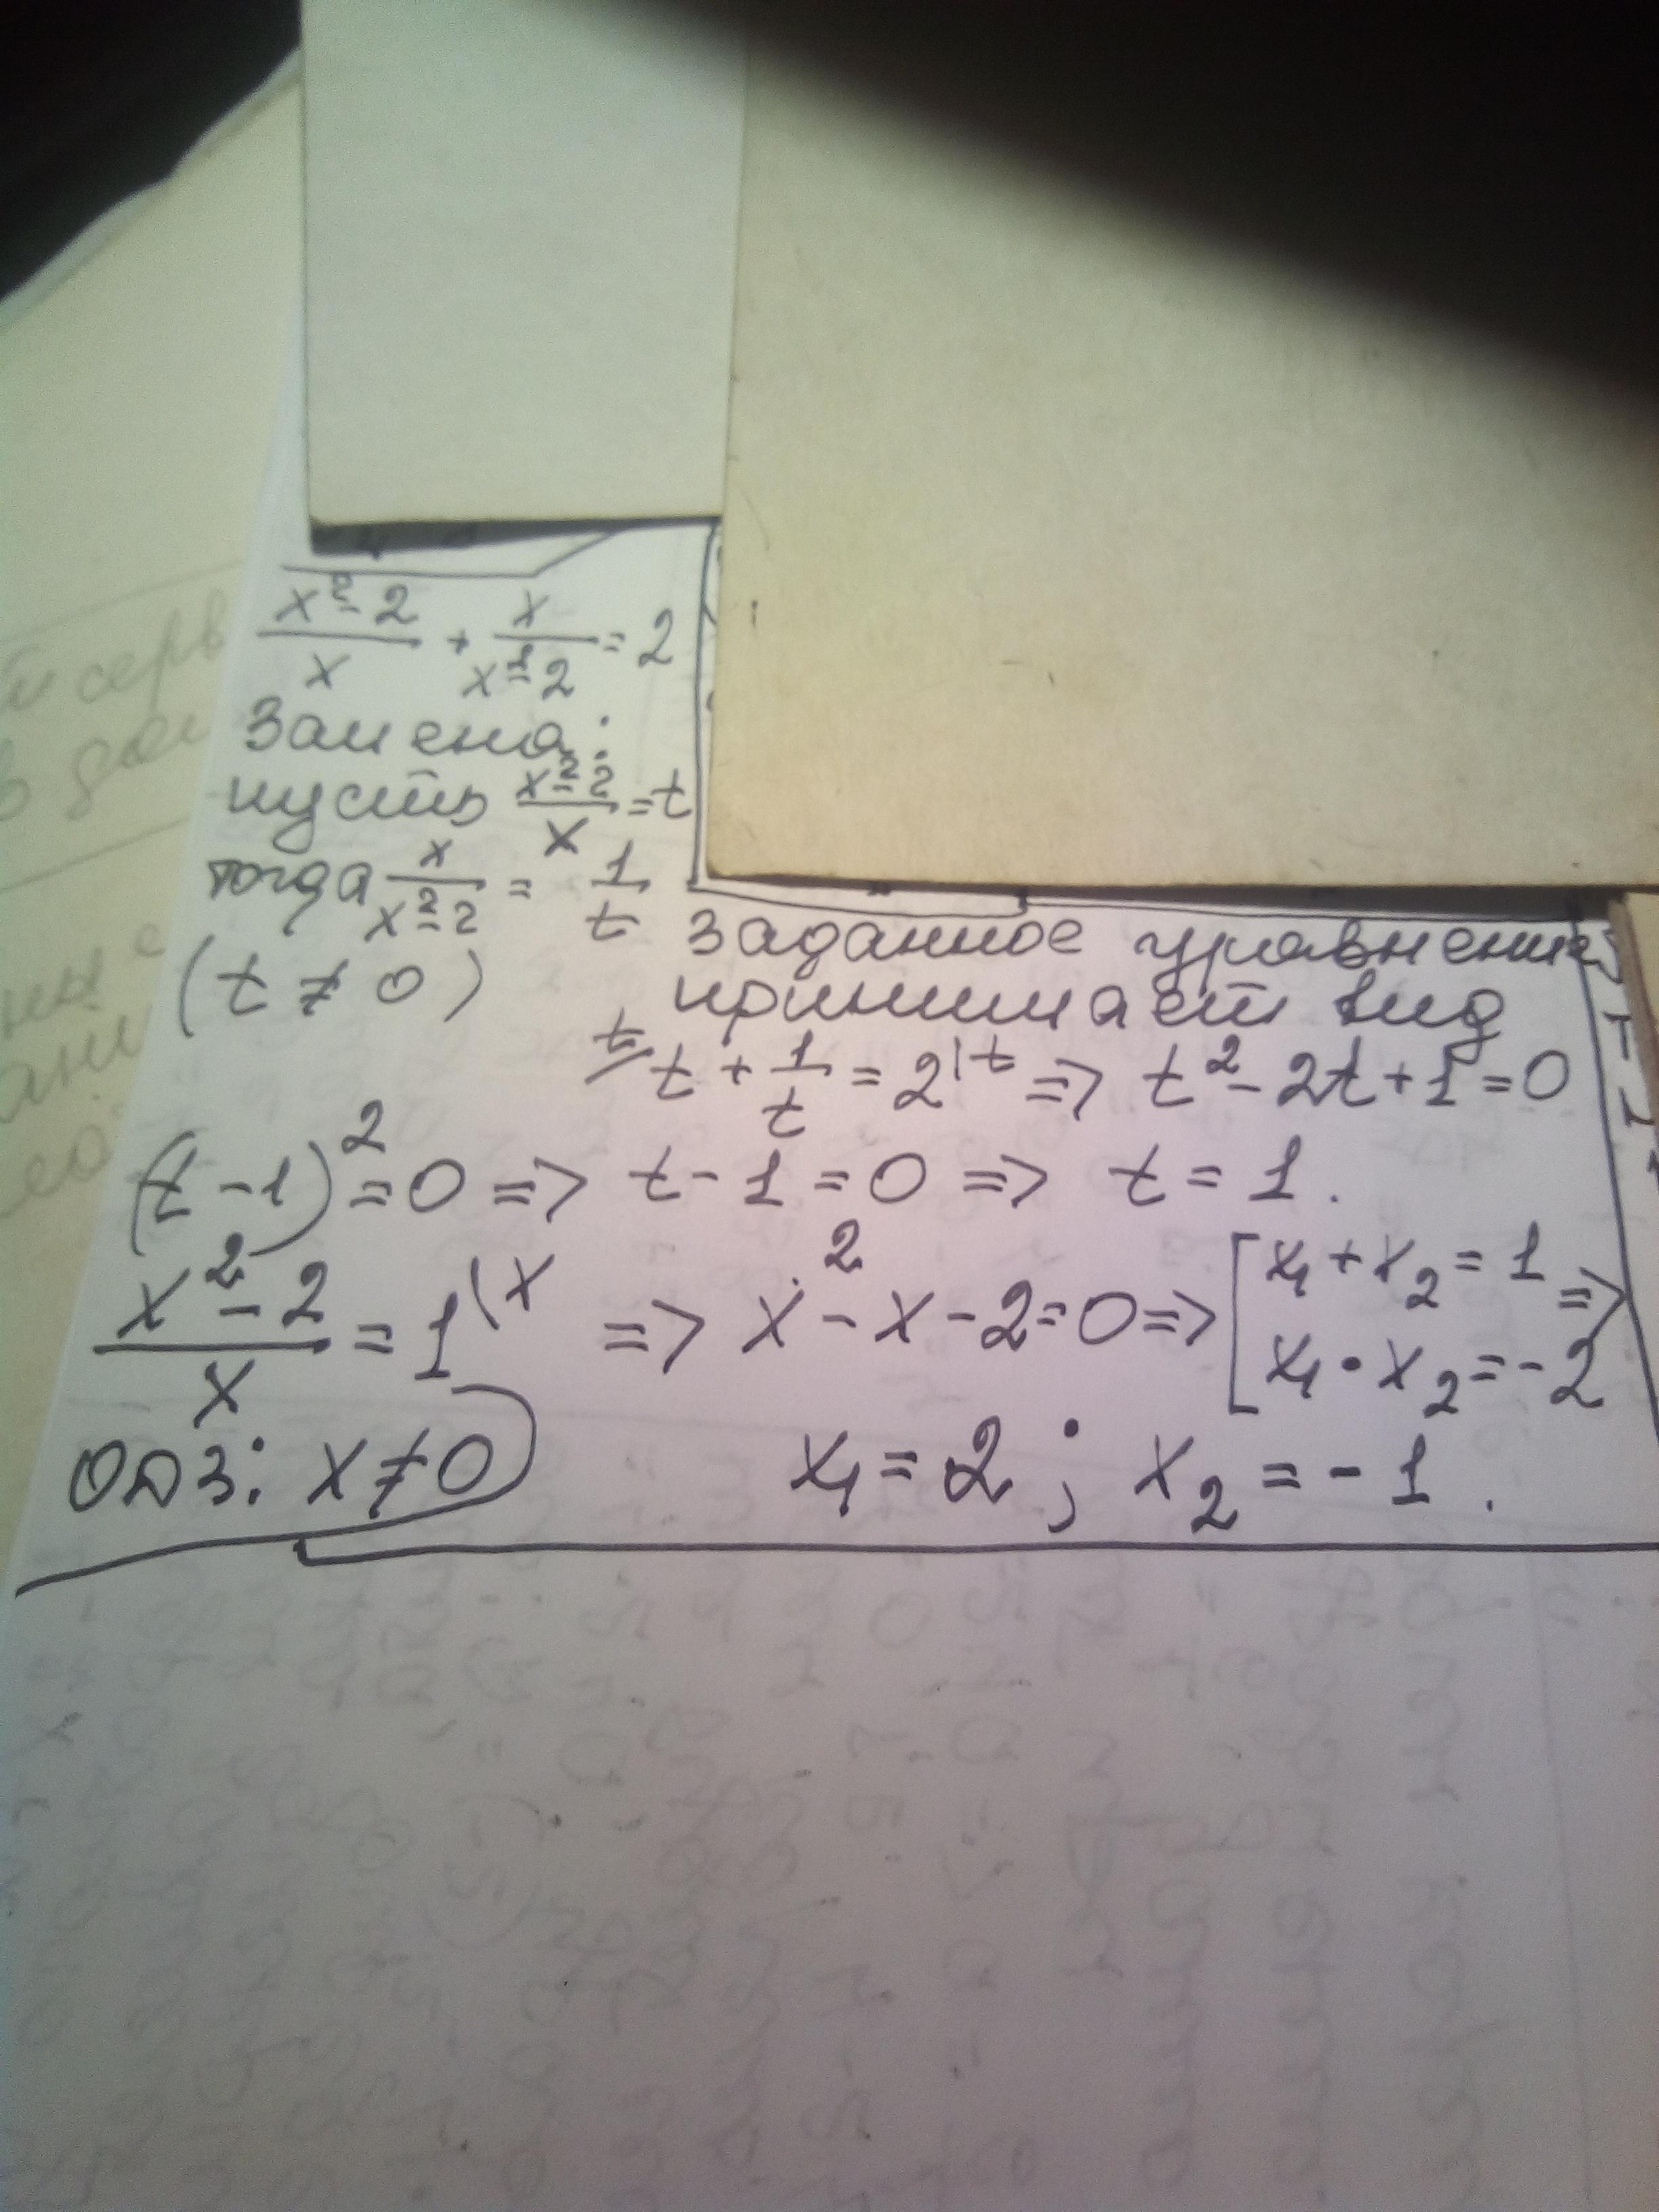 x² - 2 / x + x / x² - 2 = 2
Замена:
пусть x² - 2 / x = t
тогда x / x² - 2 = 1 / t
(t ≠ 0)
заданное уравнение
принимает вид
t/ t + 1 / t = 2 |t => t² - 2t + 1 = 0
(t - 1)² = 0 => t - 1 = 0 => t = 1.
x² - 2 / x = 1 |x => x² - x - 2 = 0 => [ x₁ + x₂ = 1 =>
x₁ · x₂ = -2
ОДЗ: x ≠ 0
x₁ = 2 ; x₂ = -1 .